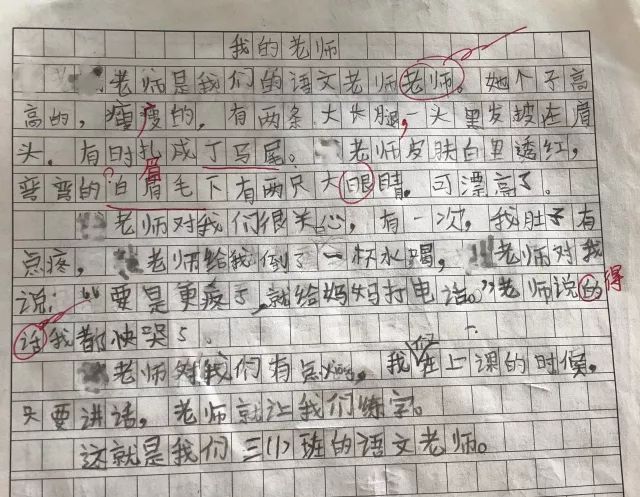 我的老师
老师是我们的语文老师老师。她个子高
高的,瘦瘦的,有两条大长腿,一头黑发披在肩
头,有时扎成了马尾。老师皮肤白里透红,
弯弯的眉毛下有两只大眼睛,可漂亮了。
老师对我们很关心,有一次,我肚子有
点疼,老师给我倒了一杯水喝,老师对我
说:“要是更疼了,就给妈妈打电话。”老师说的得
话我都快哭了。
老师对我们有点凶,我们在上课的时候,
只要讲话,老师就让我们练字。
这就是我们三(1)班的语文老师。